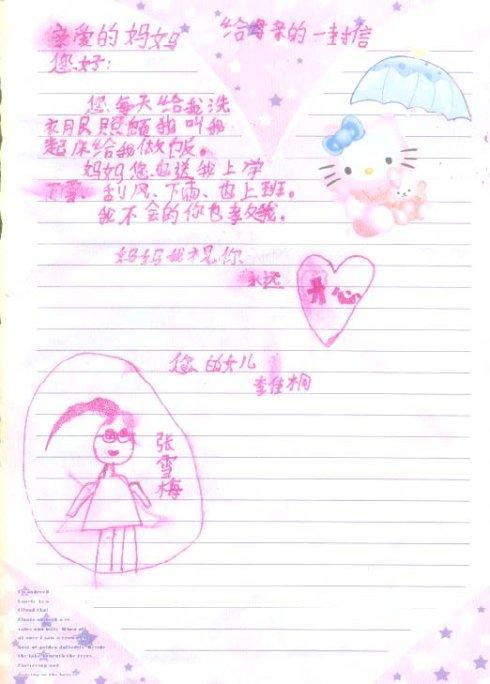 给母亲的一封信
亲爱的妈妈
您好:
您每天给我洗
衣服照顾我叫我
起床给我做饭。
妈妈您也送我上学
下雪、刮风、下雨、也上班。
我不会的你也教我。
妈妈我祝你
永远
开心
您的女儿
李佳桐
张
雪
梅
I wandered
Lonely as a
Cloud that
Floats on high o'er
vales and hills When all
at once I saw a crowd
host of golden daffodils Beside
the lake beneath the trees
Fluttering and
dancing in the breeze